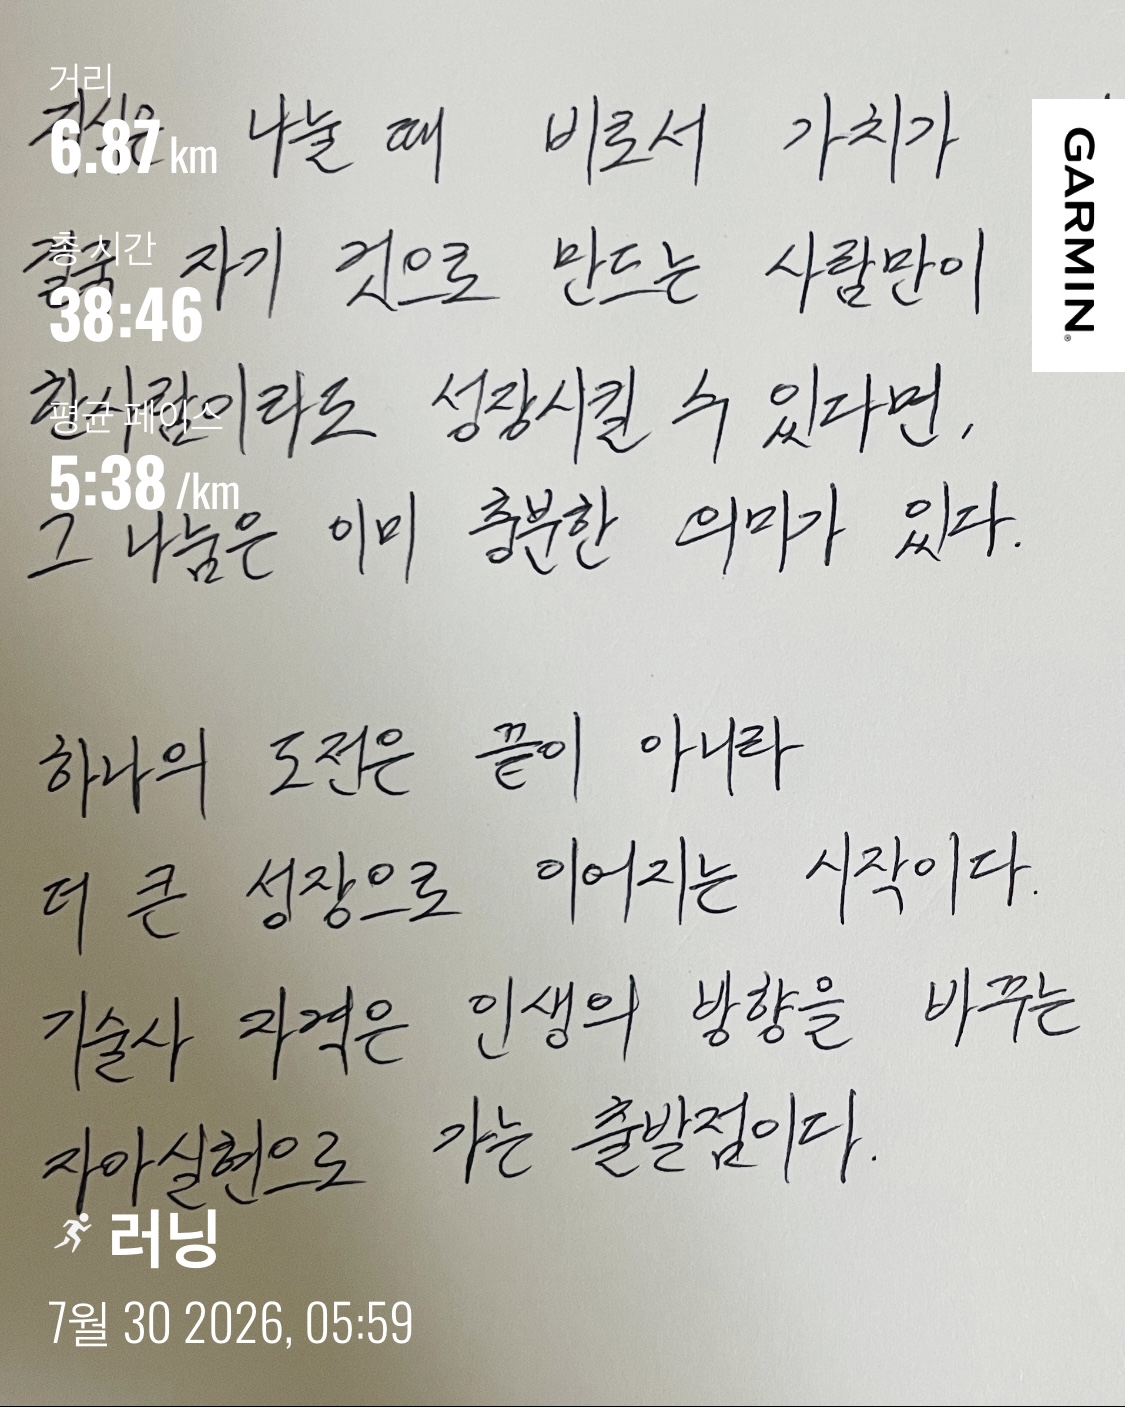 거리
지식은 나눌 때 비로서 가치가
6.87 km
총 시간
결국 자기 것으로 만드는 사람만이
38:46
한사람이라도 성장시킬 수 있다면,
평균 페이스
5:38 /km
그 나눔은 이미 충분한 의미가 있다.
하나의 도전은 끝이 아니라
더 큰 성장으로 이어지는 시작이다.
기술사 자격은 인생의 방향을 바꾸는
자아실현으로 가는 출발점이다.
러닝
7월 30 2026, 05:59
GARMIN